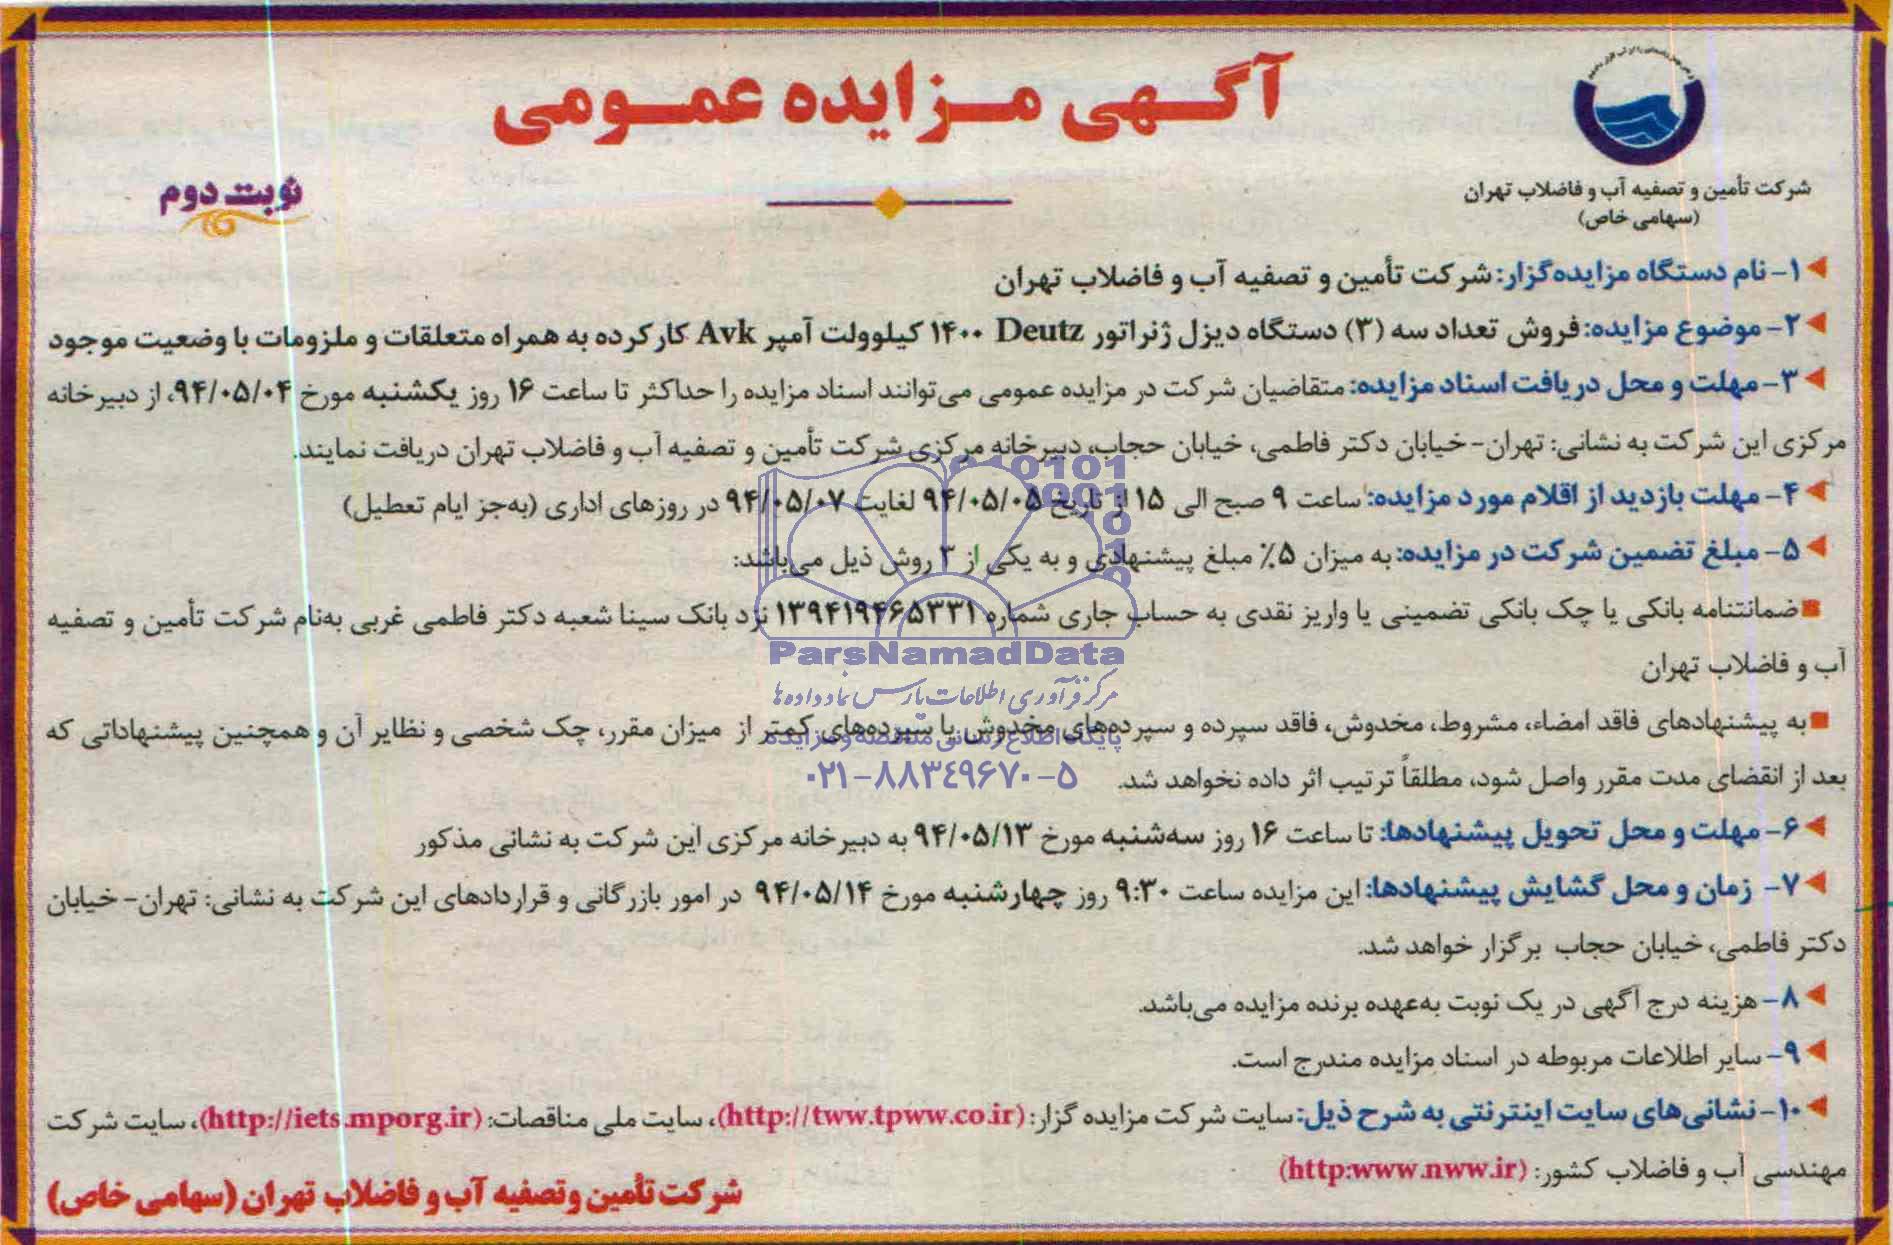 آگهی مزایده عمومی
شرکت تأمین و تصفیه آب و فاضلاب تهران
(سهامی خاص)
نوبت دوم
۱- نام دستگاه مزایده‌گزار: شرکت تأمین و تصفیه آب و فاضلاب تهران
۲- موضوع مزایده: فروش تعداد سه (۳) دستگاه دیزل ژنراتور Deutz ۱۴۰۰ کیلوولت آمپر Avk کارکرده به همراه متعلقات و ملزومات با وضعیت موجود
۳- مهلت و محل دریافت اسناد مزایده: متقاضیان شرکت در مزایده عمومی می‌توانند اسناد مزایده را حداکثر تا ساعت ۱۶ روز یکشنبه مورخ ۹۴/۰۵/۰۴، از دبیرخانه
مرکزی این شرکت به نشانی: تهران- خیابان دکتر فاطمی، خیابان حجاب، دبیرخانه مرکزی شرکت تأمین و تصفیه آب و فاضلاب تهران دریافت نمایند.
۴- مهلت بازدید از اقلام مورد مزایده: ساعت ۹ صبح الی ۱۵ از تاریخ ۹۴/۰۵/۰۵ لغایت ۹۴/۰۵/۰۷ در روزهای اداری (به‌جز ایام تعطیل)
۵- مبلغ تضمین شرکت در مزایده: به میزان ۵٪ مبلغ پیشنهادی و به یکی از ۳ روش ذیل می‌باشد:
ضمانتنامه بانکی یا چک بانکی تضمینی یا واریز نقدی به حساب جاری شماره ۱۳۹۴۱۹۴۶۵۳۳۱ نزد بانک سینا شعبه دکتر فاطمی غربی به‌نام شرکت تأمین و تصفیه
آب و فاضلاب تهران
ParsNamadData
مرکز فرآوری اطلاعات پارس نماد داده‌ها
به پیشنهادهای فاقد امضاء، مشروط، مخدوش، فاقد سپرده و سپرده‌های مخدوش یا سپرده‌های کمتر از میزان مقرر، چک شخصی و نظایر آن و همچنین پیشنهاداتی که
پایگاه اطلاع رسانی مناقصه و مزایده
بعد از انقضای مدت مقرر واصل شود، مطلقاً ترتیب اثر داده نخواهد شد.
۰۲۱-۸۸۳۴۹۶۷۰-۵
۶- مهلت و محل تحویل پیشنهادها: تا ساعت ۱۶ روز سه‌شنبه مورخ ۹۴/۰۵/۱۳ به دبیرخانه مرکزی این شرکت به نشانی مذکور
۷- زمان و محل گشایش پیشنهادها: این مزایده ساعت ۹:۳۰ روز چهارشنبه مورخ ۹۴/۰۵/۱۴ در امور بازرگانی و قراردادهای این شرکت به نشانی: تهران- خیابان
دکتر فاطمی، خیابان حجاب برگزار خواهد شد.
۸- هزینه درج آگهی در یک نوبت به‌عهده برنده مزایده می‌باشد.
۹- سایر اطلاعات مربوطه در اسناد مزایده مندرج است.
۱۰- نشانی‌های سایت اینترنتی به شرح ذیل: سایت شرکت مزایده گزار: (http://tww.tpww.co.ir)، سایت ملی مناقصات: (http://iets.mporg.ir)، سایت شرکت
مهندسی آب و فاضلاب کشور: (http:www.nww.ir)
شرکت تأمین و تصفیه آب و فاضلاب تهران (سهامی خاص)